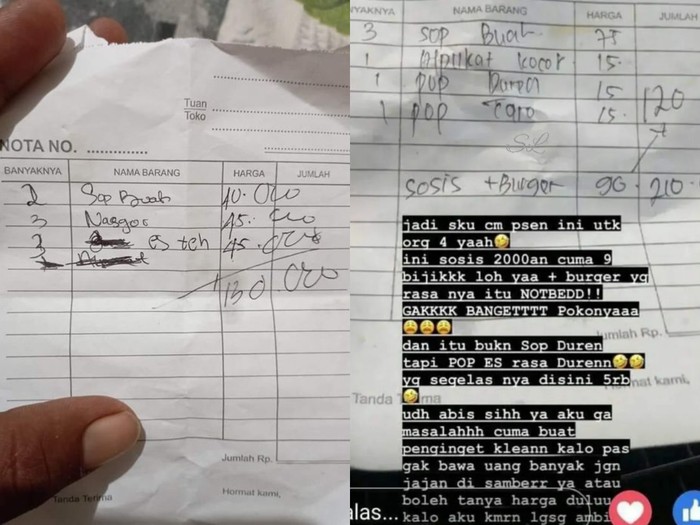 Tuan
Toko
NOTA NO. ..............
BANYAKNYA NAMA BARANG HARGA JUMLAH
2 Sop Buah 40.000
3 Nasgor 45.000
3 es teh 45.000
130 000
Jumlah Rp.
Tanda Terima Hormat kami,
NYAKNYA NAMA BARANG HARGA JUMLAH
3 Sop Buah 75
1 Alpukat kocor 15.
1 POP Duren 15
1 POP Taro 15. 120
Sosis + Burger 90. 210.
jadi sku cm psen ini utk
org 4 yaah🤣
ini sosis 2000an cuma 9
bijikkk loh yaa + burger yg
rasa nya itu NOTBEDD!!
GAKKKK BANGETTTT Pokonyaaa
😩😩😩
umlah Rp.
dan itu bukn Sop Duren
tapi POP ES rasa Durenn🤣🤣
yg segelas nya disini 5rb
🤣
kami,
Tanda T rima
udh abis sihh ya aku ga
masalahhh cuma buat
penginget kleann kalo pas
gak bawa uang banyak jgn
jajan di samberr ya atau
boleh tanya harga duluu
kalo aku kmrn lgsg ambi
alas...